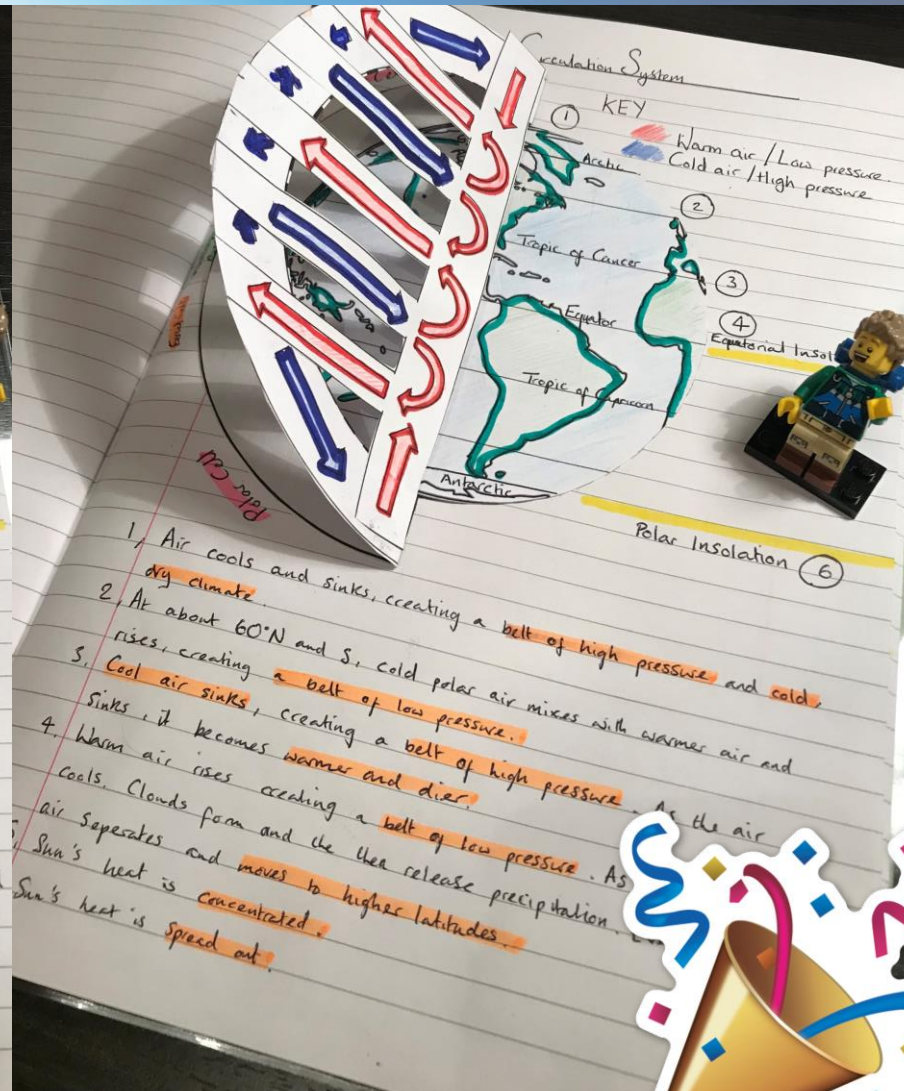 Circulation System
KEY
Warm air / Low pressure
Cold air / High pressure
1
Arctic
2
Tropic of Cancer
3
Equator
4
Equatorial
Tropic of Capricorn
Antarctic
Polar Insolation 6
Polar
1, Air cools and sinks, creating a belt of high pressure and cold,
dry climate.
2, At about 60°N and S, cold polar air mixes with warmer air and
rises, creating a belt of low pressure.
3, Cool air sinks, creating a belt of high pressure. As the air
sinks, it becomes warmer and dier.
4, Warm air rises creating a belt of low pressure. As
cools, Clouds form and the then release precipitation.
air seperates and moves to higher latitudes.
Sun's heat is concentrated.
Sun's heat is spread out.